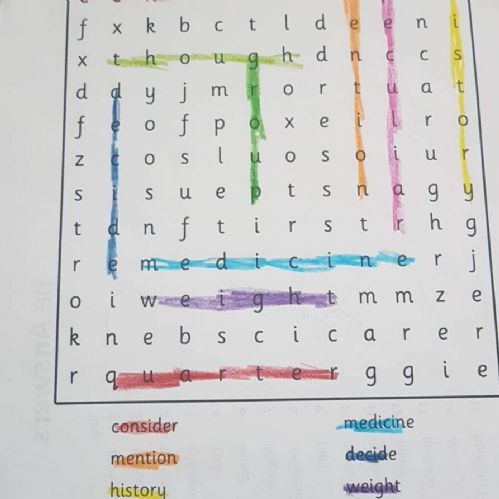 f x k b c t l d e e n i
x t h o u g h d n c c s
d d y j m r o r t u a t
f e o f p o x e i l r o
z c o s l u o s o i u r
s i s u e p t s n a g y
t d n f t i r s t r h g
r e m e d i c i n e r j
o i w e i g h t m m z e
k n e b s c i c a r e r
r q u a r t e r g g i e
consider medicine
mention decide
history weight